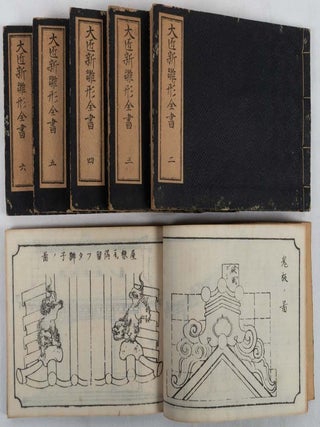 大匠新雛形全書 二
大匠新雛形全書 三
大匠新雛形全書 四
大匠新雛形全書 五
大匠新雛形全書 六
鬼板ノ圖
屋根瓦隅留フタ獅子ノ圖